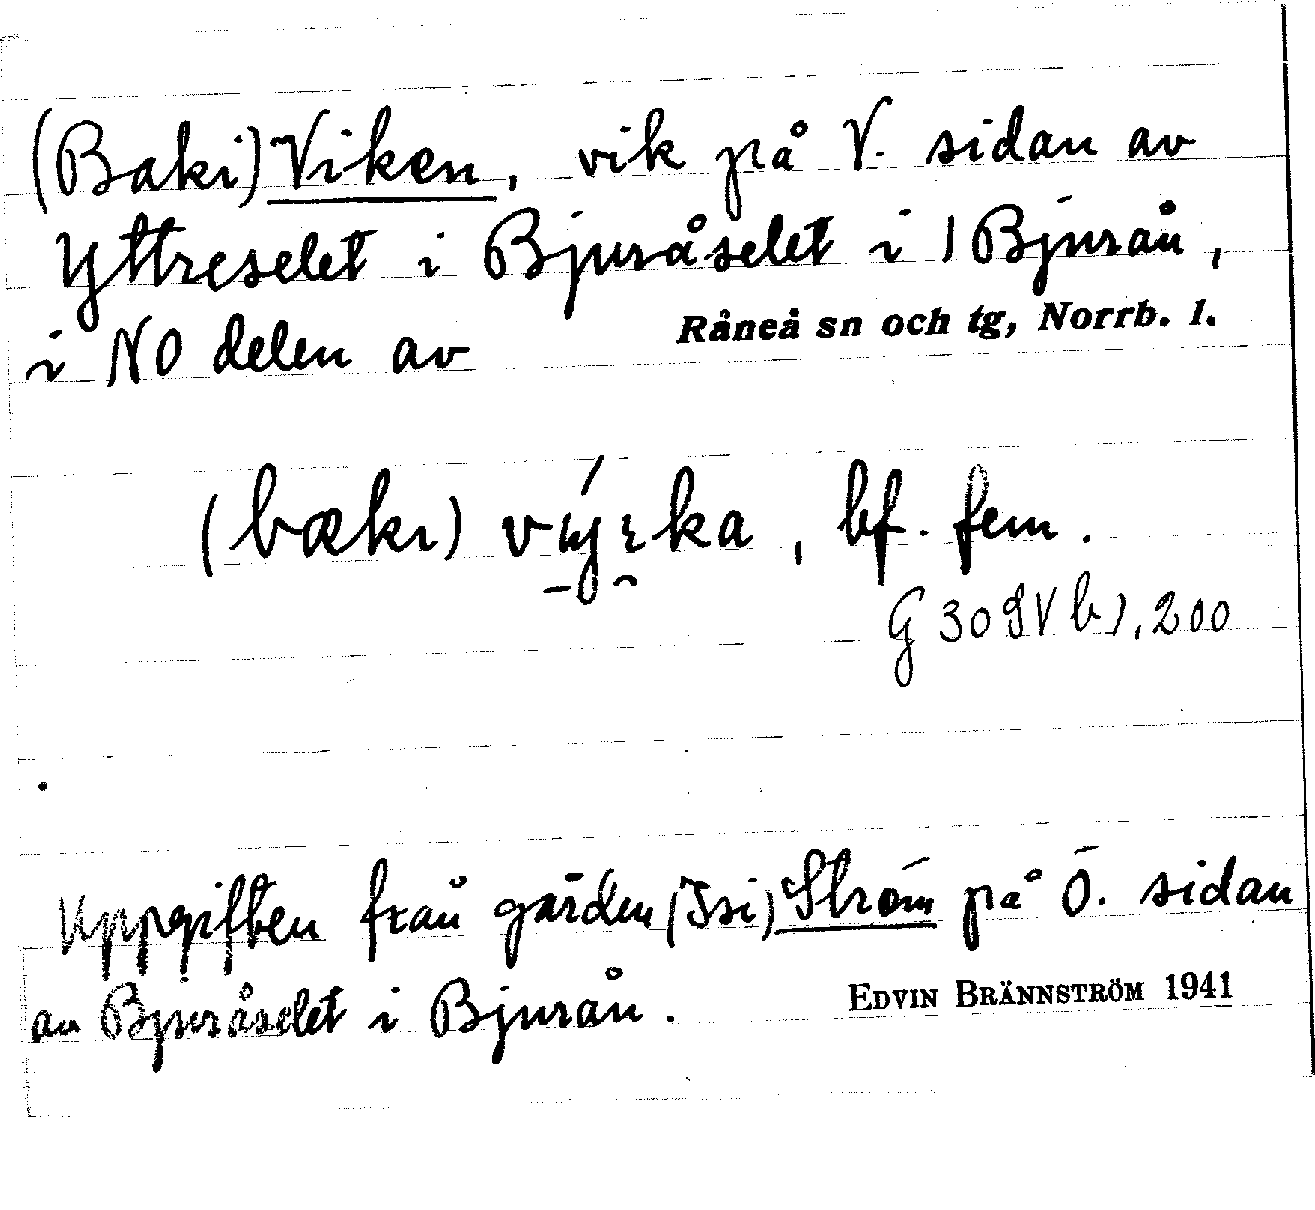 (Baki)Viken, vik på V. sidan av
Yttreselet i Bjuråselet i Bjurån,
i NO delen av Råneå sn och tg, Norrb. l.
(bæki) výi̯ka, bf. fem.
G 30 200
Uppgiften från gården (Isi)Ström på Ö. sidan
av Bjuråselet i Bjurån.
EDVIN BRÄNNSTRÖM 1941